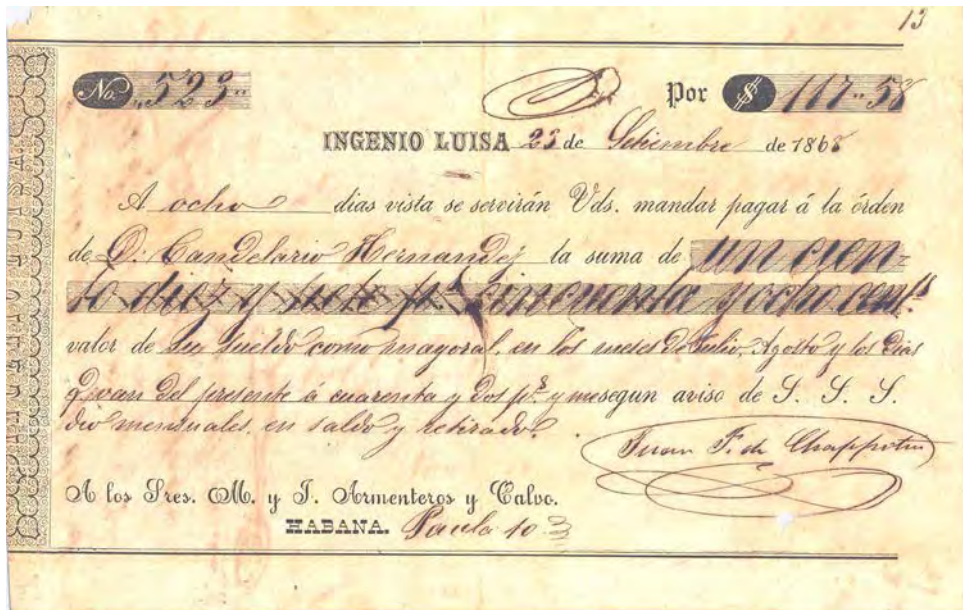 13
No. "523" Por $ 117"58
INGENIO LUISA 23 de Setiembre de 1868
A ocho dias vista se servirán Vds. mandar pagar á la órden
de D. Candelario Hernandez la suma de un cien-
to diez y siete ps. cincuenta y ocho cents
valor de su sueldo como mayoral, en los meses de Julio, Agosto y los dias
qe. van del presente á cuarenta y dos ps. y me segun aviso de S. S. S.
dio mensuales, en saldo y retirado.
Juan F. de Chappotin
A los Sres. M. y J. Armenteros y Calvo.
HABANA. Paula 10